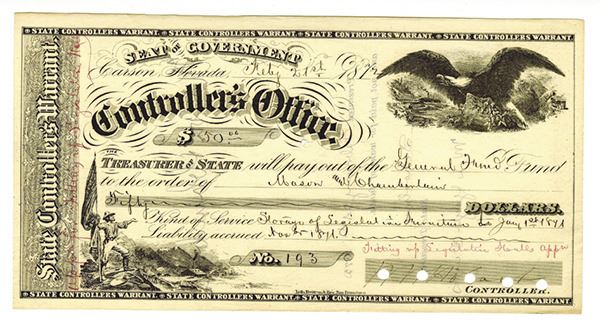 STATE CONTROLLERS WARRANT. STATE CONTROLLERS WARRANT. STATE CONTROLLERS WARRANT. STATE CONTROLLERS WARRANT.
State Controller's Warrant.
SEAT OF GOVERNMENT
Carson, Nevada, Feby 21st 187
Controller's Office,
$ 50.00
THE TREASURER OF STATE will pay out of the General Fund Fund
to the order of Mason and Chamberlain
Fifty DOLLARS.
Kind of Service Storage of Legislative Furniture to Jany 1st 1871
Liability accrued Nov 1871
Fitting up Legislative Halls Appn
No. 193
CONTROLLER.
STATE CONTROLLERS WARRANT. STATE CONTROLLERS WARRANT. STATE CONTROLLERS WARRANT. STATE CONTROLLERS WARRANT.